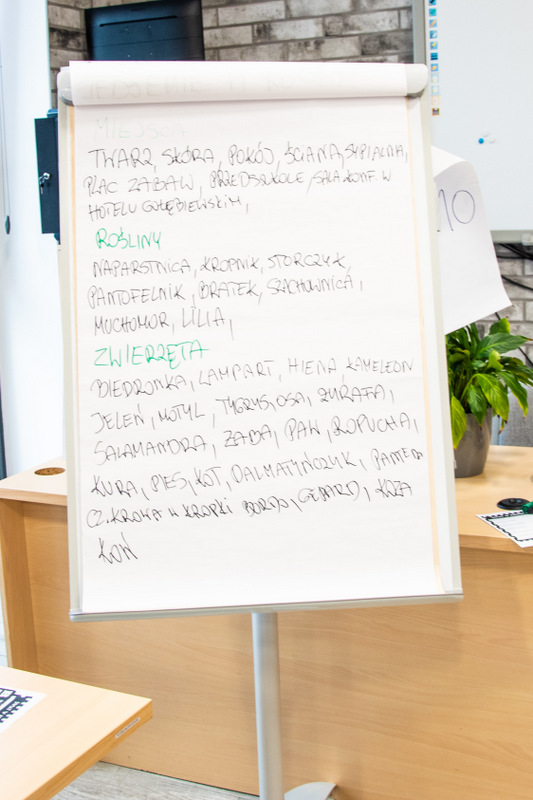 MIEJSCA
TWARZ, SKÓRA, POKÓJ, ŚCIANA, SYPIALNIA,
PLAC ZABAW, PRZEDSZKOLE / SALA KONF. W
HOTELU GOŁĘBIEWSKIM,
ROŚLINY
NAPARSTNICA, KROPNIK, STORCZYK,
PANTOFELNIK, BRATEK, SZACHOWNICA,
MUCHOMOR, LILIA,
ZWIERZĘTA
BIEDRONKA, LAMPART, HIENA, KAMELEON
JELEŃ, MOTYL, TYGRYS, OSA, ŻYRAFA,
SALAMANDRA, ŻABA, PAW, ROPUCHA,
KURA, PIES, KOT, DALMATYŃCZYK, PANTERA
CZ. KROWA W KROPKI BORDO, GEPARD, KOZA
KOŃ
10